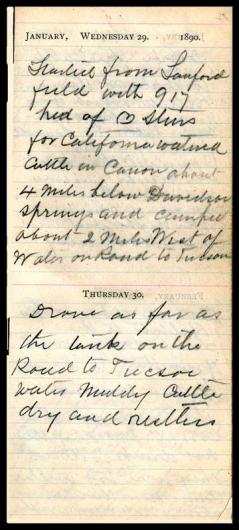 JANUARY, WEDNESDAY 29. 1890.
Started from Sanford
field with 917
hed of ♡ Sters
for California watered
Cattle in Canon about
4 miles below Davidson
springs and camped
about 2 Miles West of
Water on Road to Tucson
THURSDAY 30.
Drove as far as
the tank on the
Road to Tucson
water Muddy Cattle
dry and restless